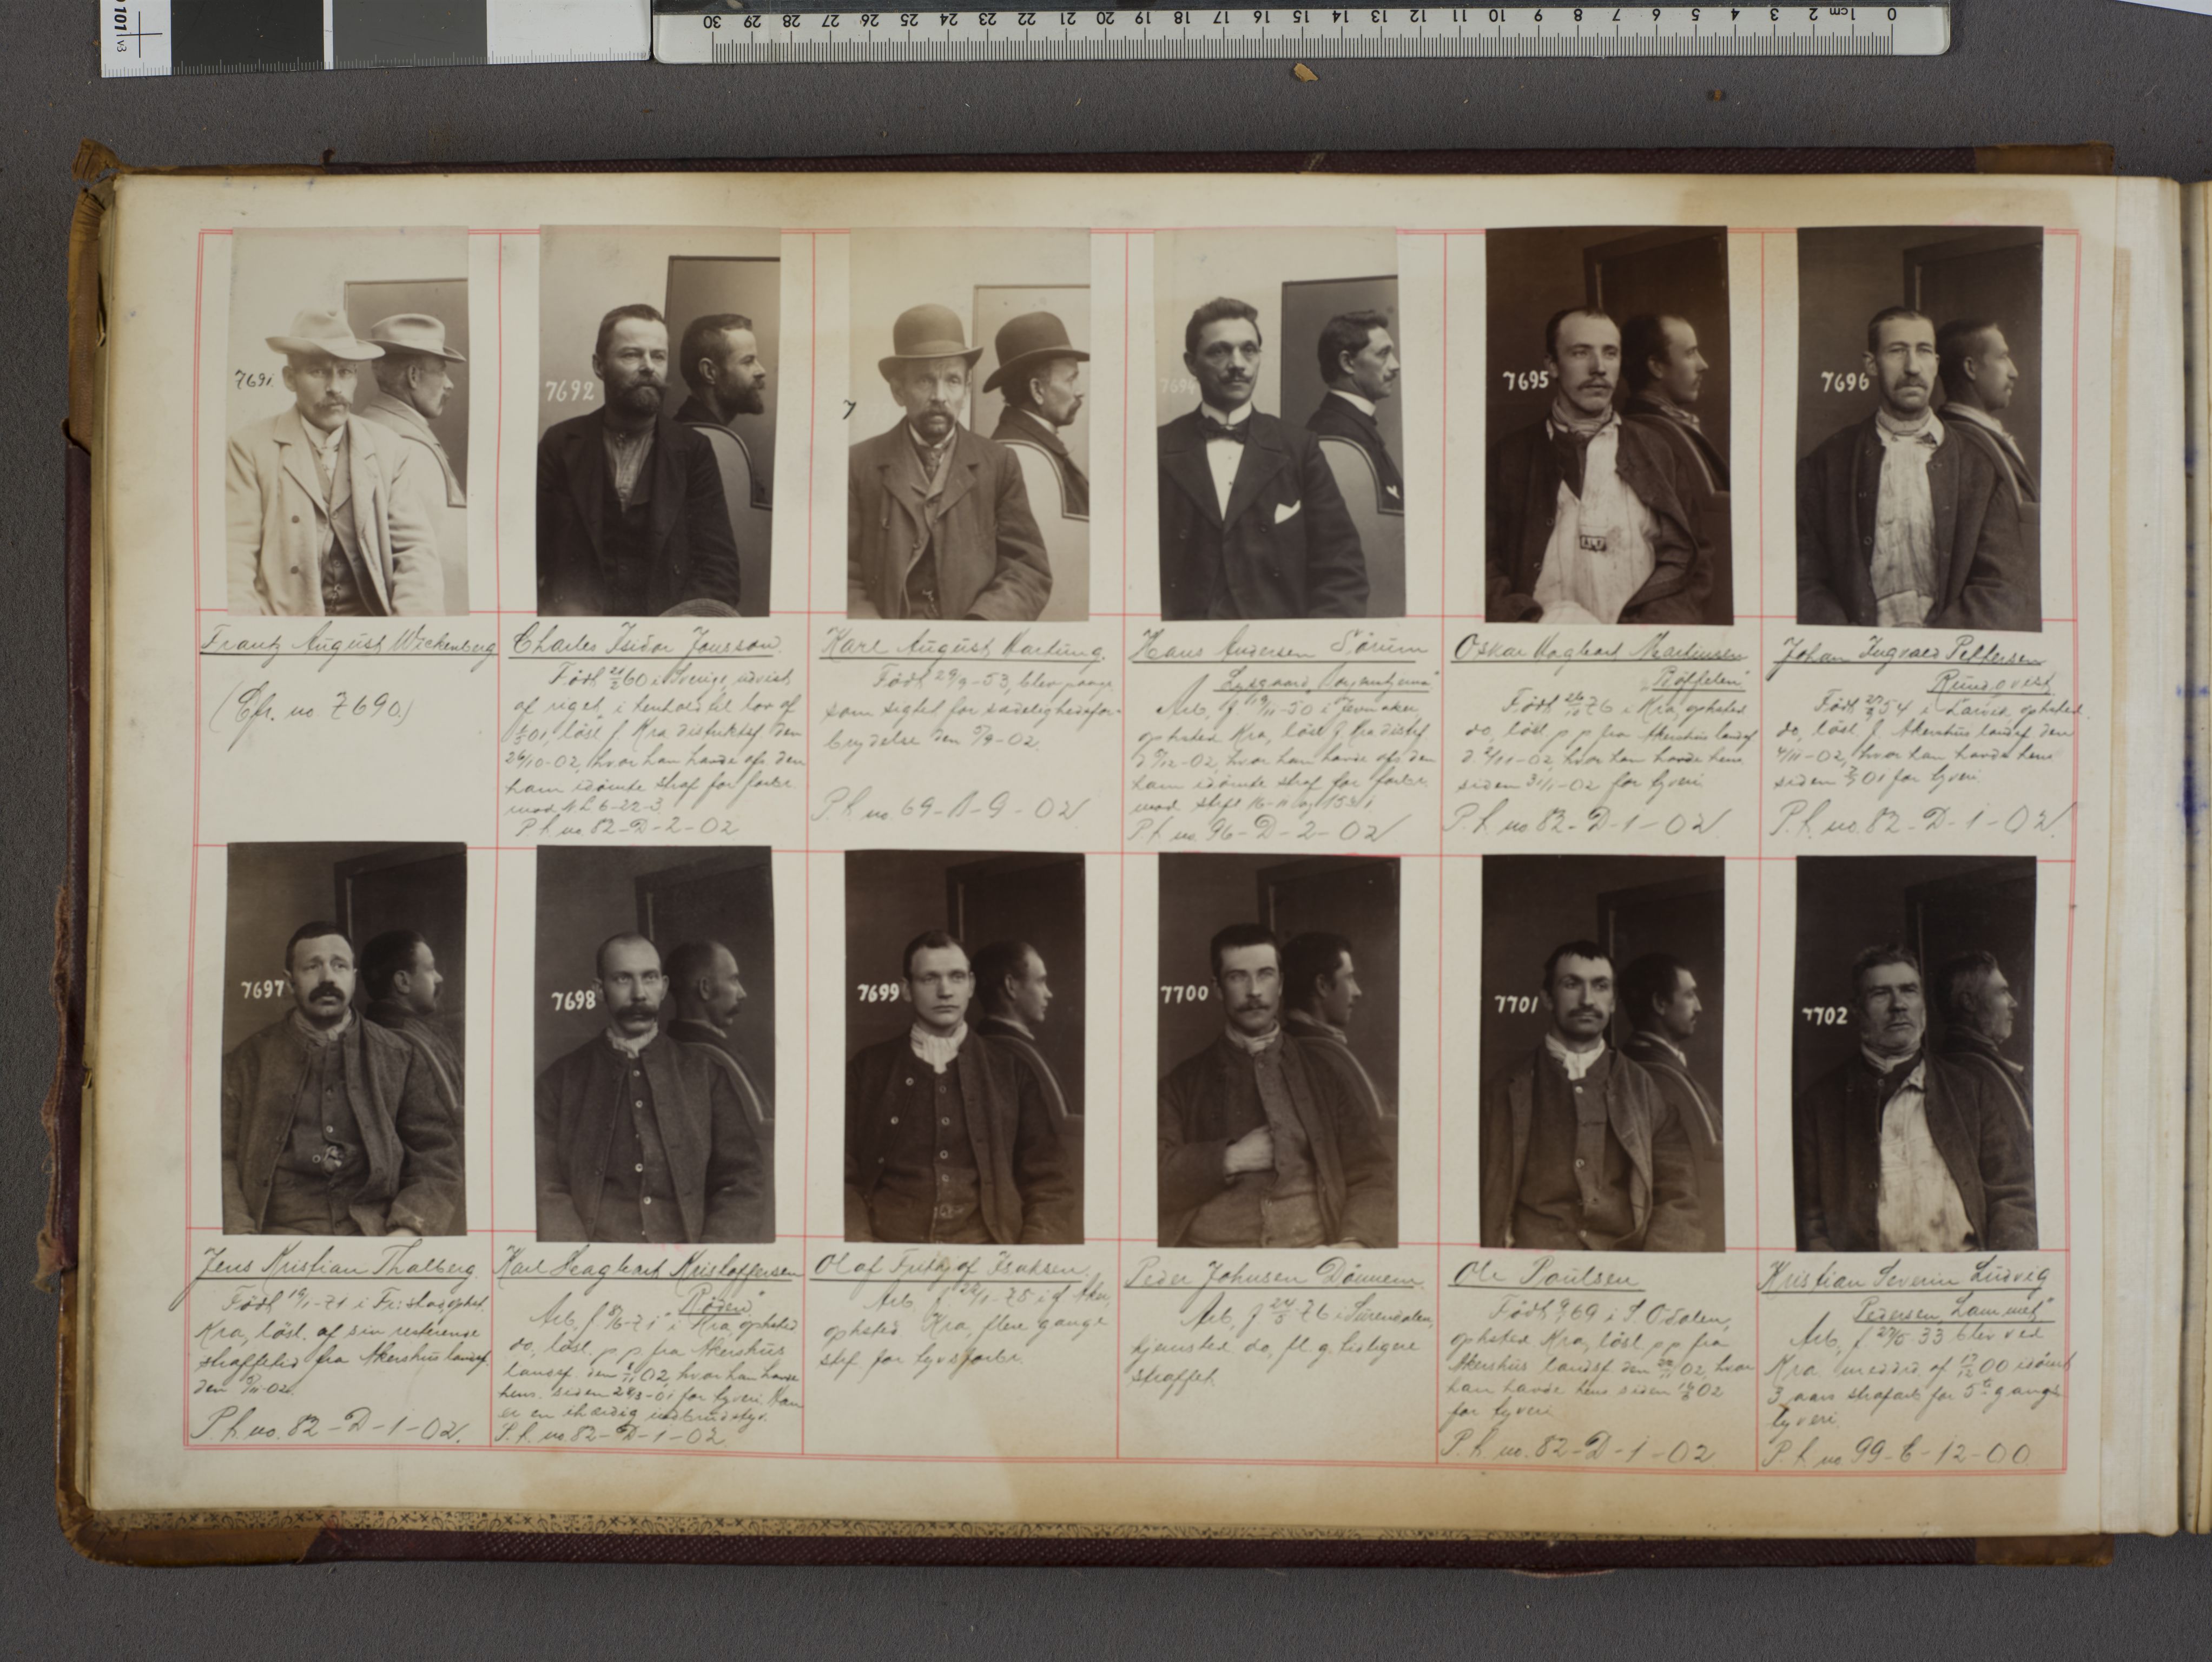 101 v3
0 1cm 2 3 4 5 6 7 8 9 10 11 12 13 14 15 16 17 18 19 20 21 22 23 24 25 26 27 28 29 30
7691.
Frantz August Wickenberg
(Cfr. no 7690.)
7692
Charles Isidor Jonsson.
Född 21/2 60 i Sverige, udvist
af riget i henhold til lov af
01, løsl. f. Kra distriktsf. den
26/10-02, hvor han havde afs. den
ham idømte straf for forbr.
mod N L 6-22-3
P.k. no 82-D-2-02
7
Karl August Hartung.
Født 29/9-53, blev paagr.
som sigtet for sædelighedsfor-
brydelse den 5/9-02.
P.k. no. 69-A-9-02
7694
Hans Andersen Sörum
Arb, f. 19/11-50 i
opfosted Kra, løsl. f. Kra distsf.
d. 5/12-02, hvor han havde afs. den
ham idømte straf for forbr.
mod stfl 16-11 og
P.k. no. 96-D-2-02
7695
Oskar Hagbart Martinsen
"Böffelen"
Født 26/10 76 i Kra, opfosted
do, løsl. p p fra Akershus landsf
d. 2/11-02, hvor han havde hens.
siden 31/1-02 for tyveri
P.k. no 82-D-1-02
7696
Johan Ingvald Pettersen
Rundqvist.
Født 27/3 54 i Larvik, opfosted.
do, løsl. f. Akershus landsf den
4/11-02, hvor han havde hens
siden 01 for tyveri
P.k. no. 82-D-1-02.
7697
Jens Kristian Thalberg.
Født 19/1-71 i Fr:stad, opfost.
Kra, løsl. af sin resterende
straffetid fra Akershus landsf.
den 5/11-02.
P.k. no. 82-D-1-02.
7698
Karl Heagbart Kristoffersen
"Röden"
Arb, f. 8/6-71 i Kra, opfosted
do, løsl. p p fra Akershus
landsf. den 02, hvor han havde
hens. siden 28/3-01 for tyveri. Han
er en ihærdig indbrudstyv.
P.k. no 82-D-1-02.
7699
Olaf Fritjof Isaksen.
Arb. f. 22/1-75 i Aker,
opfosted Kra, flere gange
stf. for tyvsforbr.
7700
Peder Johnsen Dönnem.
Arb, f. 24/5 76 i Surendalen,
hjemsted do, fl. g. tidligere
straffet.
7701
Ole Poulsen
Født 69 i S. Odalen,
opfosted Kra, løsl. p p fra
Akershus landsf den 22/11 02, hvor
han havde hens siden 02
for tyveri
P.k. no. 82-D-1-02
7702
Kristian Severin Ludvig
Pedersen "Lammet"
Arb, f. 27/5 33 blev ved
Kra meddrd af 17/12 00 idømt
3 aars strafarb for 5te gangs
tyveri
P.k. no 99-C-12-00